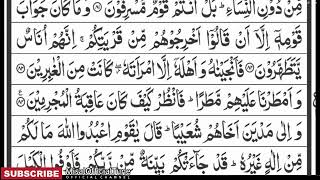 مِّنْ دُوْنِ النِّسَآءِ ؕ بَلْ اَنْتُمْ قَوْمٌ مُّسْرِفُوْنَ وَمَا كَانَ جَوَابَ
قَوْمِهٖۤ اِلَّاۤ اَنْ قَالُوْۤا اَخْرِجُوْهُمْ مِّنْ قَرْيَتِكُمْ ۚ اِنَّهُمْ اُنَاسٌ
يَّتَطَهَّرُوْنَ فَاَنْجَيْنٰهُ وَاَهْلَهٗۤ اِلَّا امْرَاَتَهٗ ۖ كَانَتْ مِنَ الْغٰبِرِيْنَ
وَاَمْطَرْنَا عَلَيْهِمْ مَّطَرًا ؕ فَانْظُرْ كَيْفَ كَانَ عَاقِبَةُ الْمُجْرِمِيْنَ
وَاِلٰى مَدْيَنَ اَخَاهُمْ شُعَيْبًا ؕ قَالَ يٰقَوْمِ اعْبُدُوا اللّٰهَ مَا لَكُمْ
مِّنْ اِلٰهٍ غَيْرُهٗ ؕ قَدْ جَآءَتْكُمْ بَيِّنَةٌ مِّنْ رَّبِّكُمْ فَاَوْفُوا الْكَيْلَ
SUBSCRIBE
OFFICIAL CHANNEL